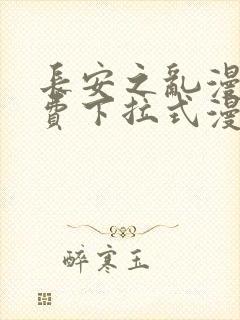 長安之亂漫
費下拉式漫
醉寒玉